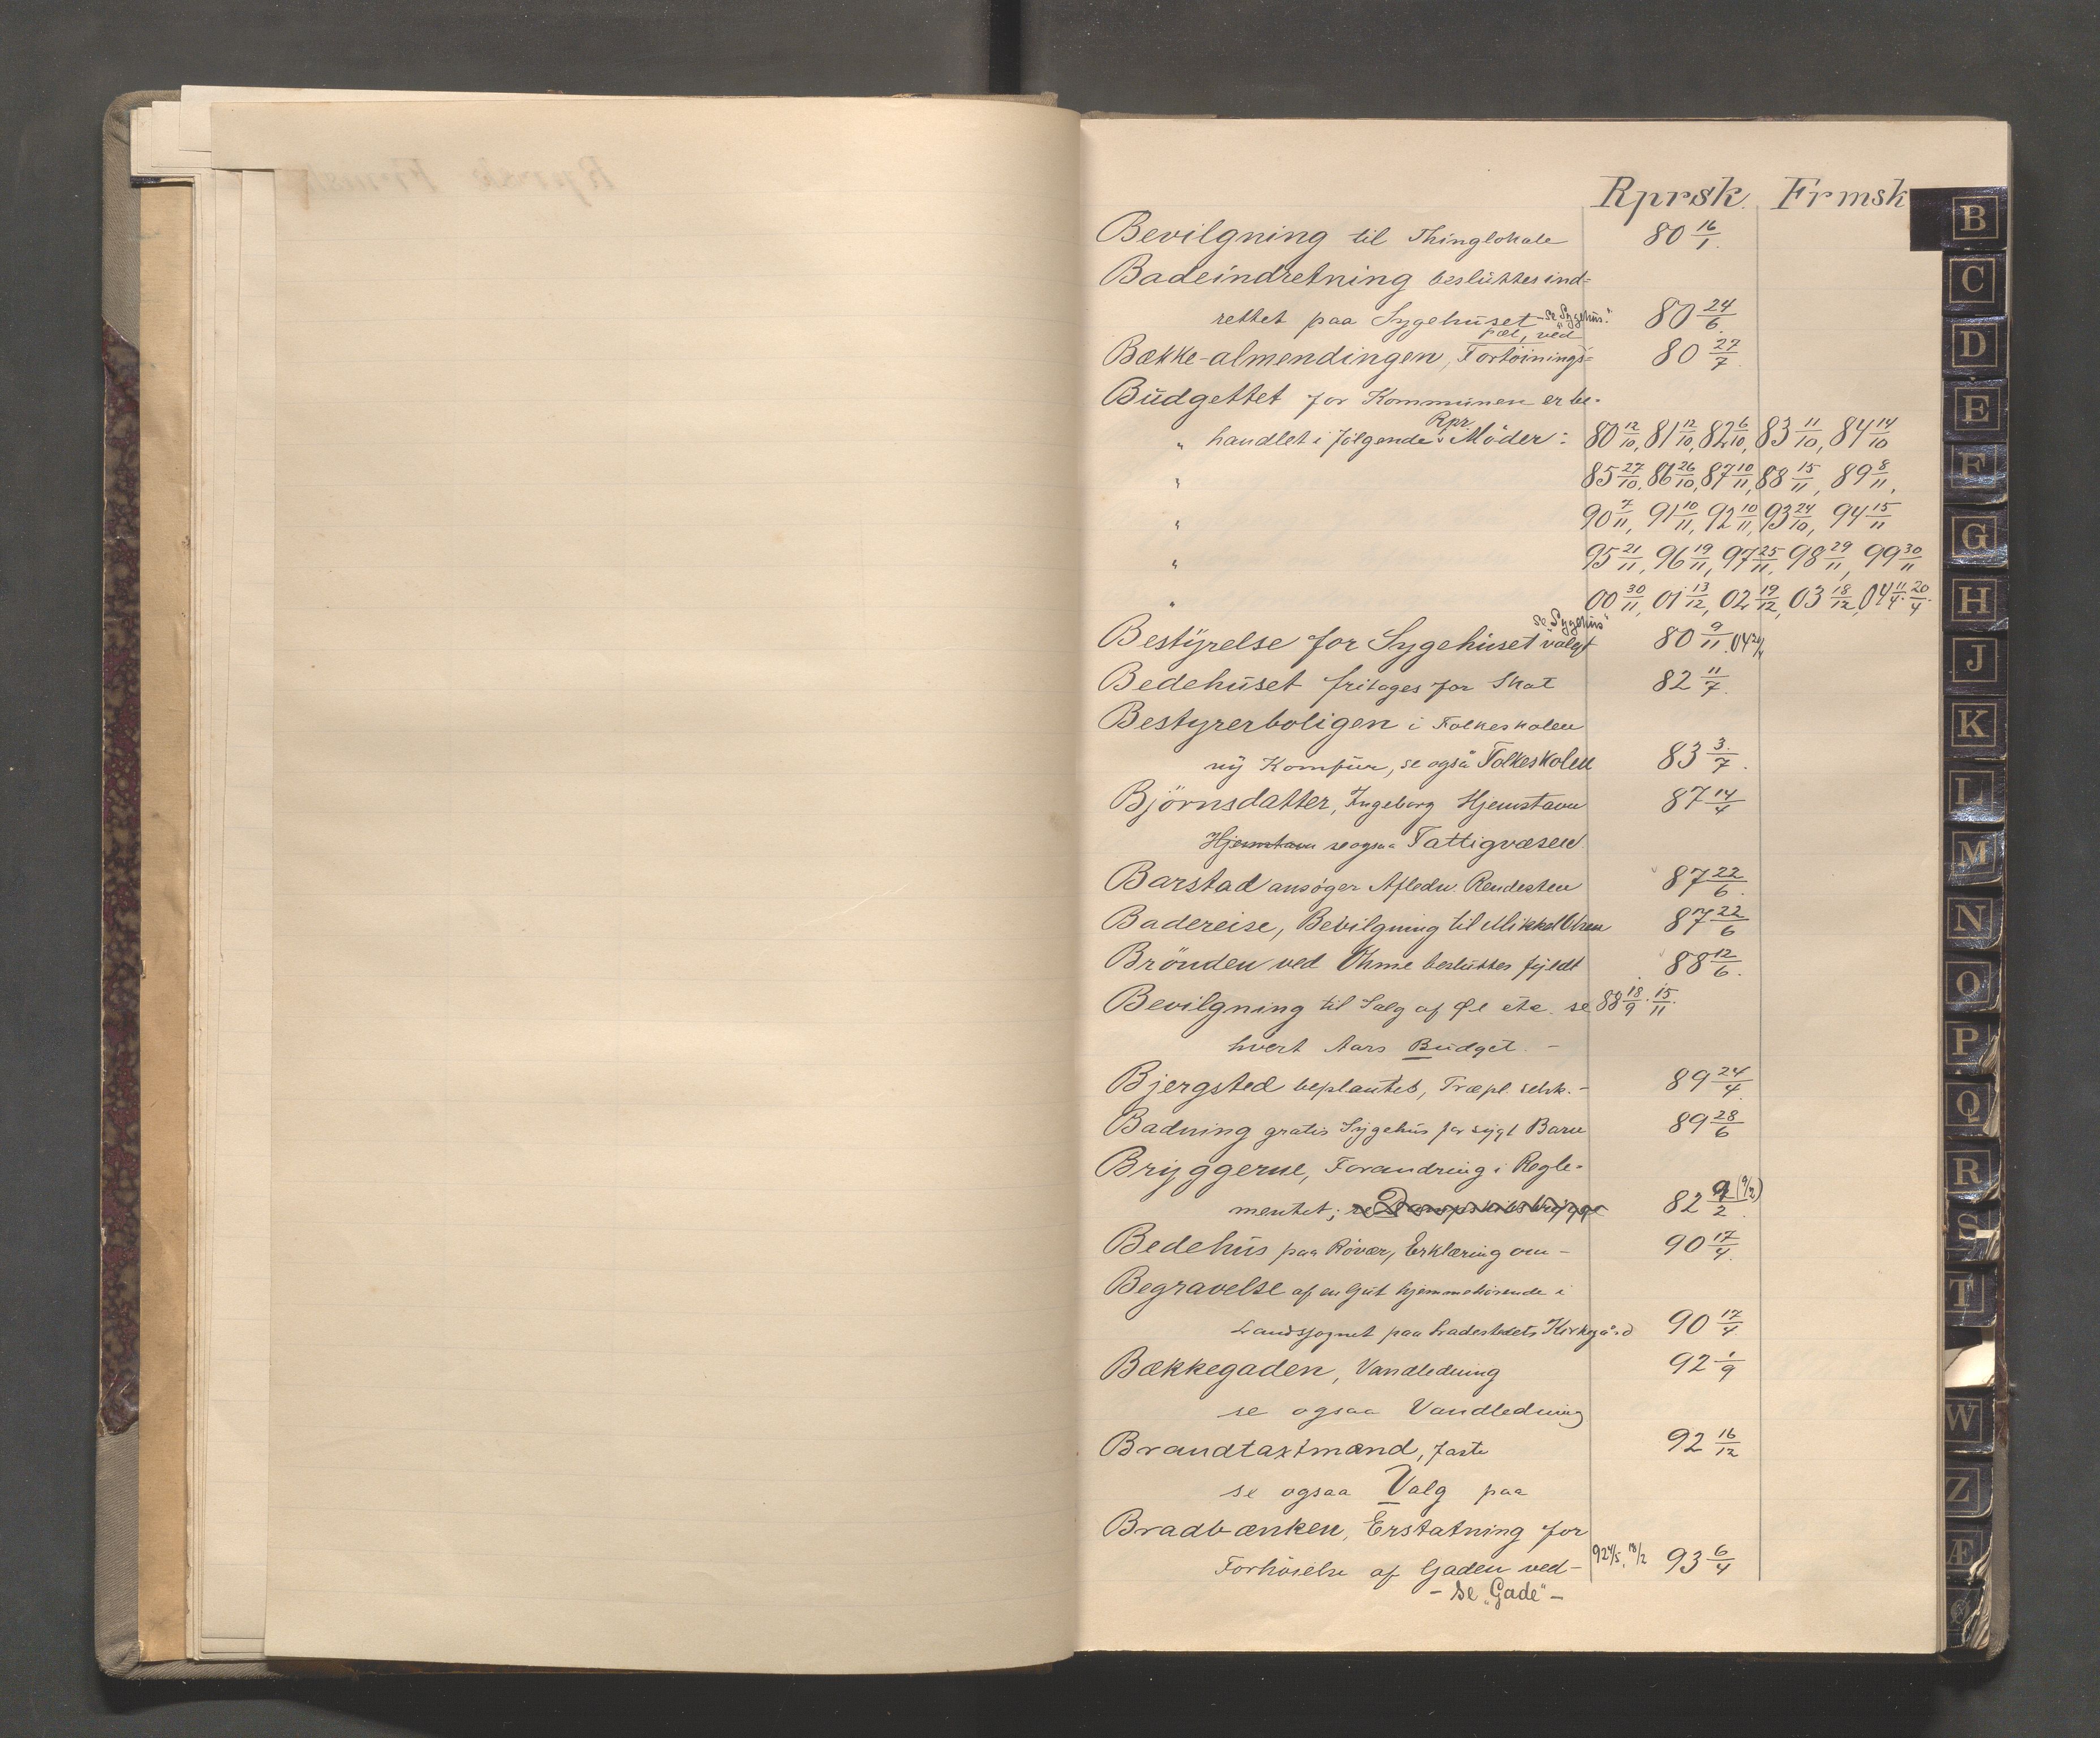 Rprsk. Frmsk
Bevilgning til Thinglokale 80 16/1.
Badeindretning besluttes ind-
rettet paa Sygehuset - se "Sygehus." 80 24/6.
pæl, ved
Bække-almendingen, Fortöinings- 80 27/7.
Budgettet for Kommunen er be-
" handlet i følgende Rpr. Möder: 80 12/10, 81 12/10, 82 6/10, 83 11/10, 84 14/10
" 85 27/10, 86 26/10, 87 10/11, 88 15/11, 89 8/11,
" 90 7/11, 91 10/11, 92 10/11, 93 24/10, 94 15/11
" 95 21/11, 96 19/11, 97 25/11, 98 29/11, 99 30/11
" 00 30/11, 01 13/12, 02 19/12, 03 18/12, 04 11/4. 20/4.
se "Sygehus"
Bestyrelse for Sygehuset valgt 80 9/11. 04 20/4
Bedehuset fritages for Skat 82 11/7.
Bestyrerboligen i Folkeskolen
ny Komfur, se også Folkeskolen 83 3/7.
Björnsdatter, Ingeborg Hjemstavn 87 14/4
Hjemstavn se ogsaa Fattigvæsen.
Barstad ansöger Afledn. Rendesten 87 22/6.
Badereise, Bevilgning til Mikkel Olsen 87 22/6
Brönden ved Ihme besluttes fyldt 88 12/6.
Bevilgning til Salg af Øl etc. se 88 18/9. 15/11.
hvert Aars Budget. -
Bjergsted beplantes, Træpl. selsk. - 89 24/4.
Badning gratis Sygehus for sygt Barn 89 28/6
Bryggerne, Forandring i Regle-
mentet; se Dampskibsbrygge 82 9/2. (9/2)
Bedehus paa Röver, Erklæring om - 90 17/4.
Begravelse af en Gut hjemmehörende i
Landsognet paa Ladestedets Kirkegård 90 17/4
Bækkegaden, Vandledning 92 1/9
se ogsaa Vandledning
Brandtaxtmænd, faste 92 16/12
se ogsaa Valg paa
Bradbænken, Erstatning for
Forhöielse af Gaden ved - 92 4/5, 18/2 93 6/4
- se "Gade" -
B
C
D
E
F
G
H
J
K
L
M
N
O
P
Q
R
S
T
W
Z
Æ
Ø